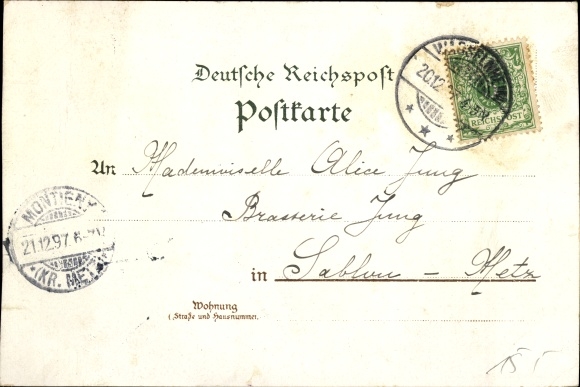 Deutsche Reichspost
Postkarte
20.12
REICHSPOST
An Mademoiselle Alice Jung
Brasserie Jung
MONTIGNY
21.12.97
(KR. METZ)
in Sablon – Metz
Wohnung
(Straße und Hausnummer.